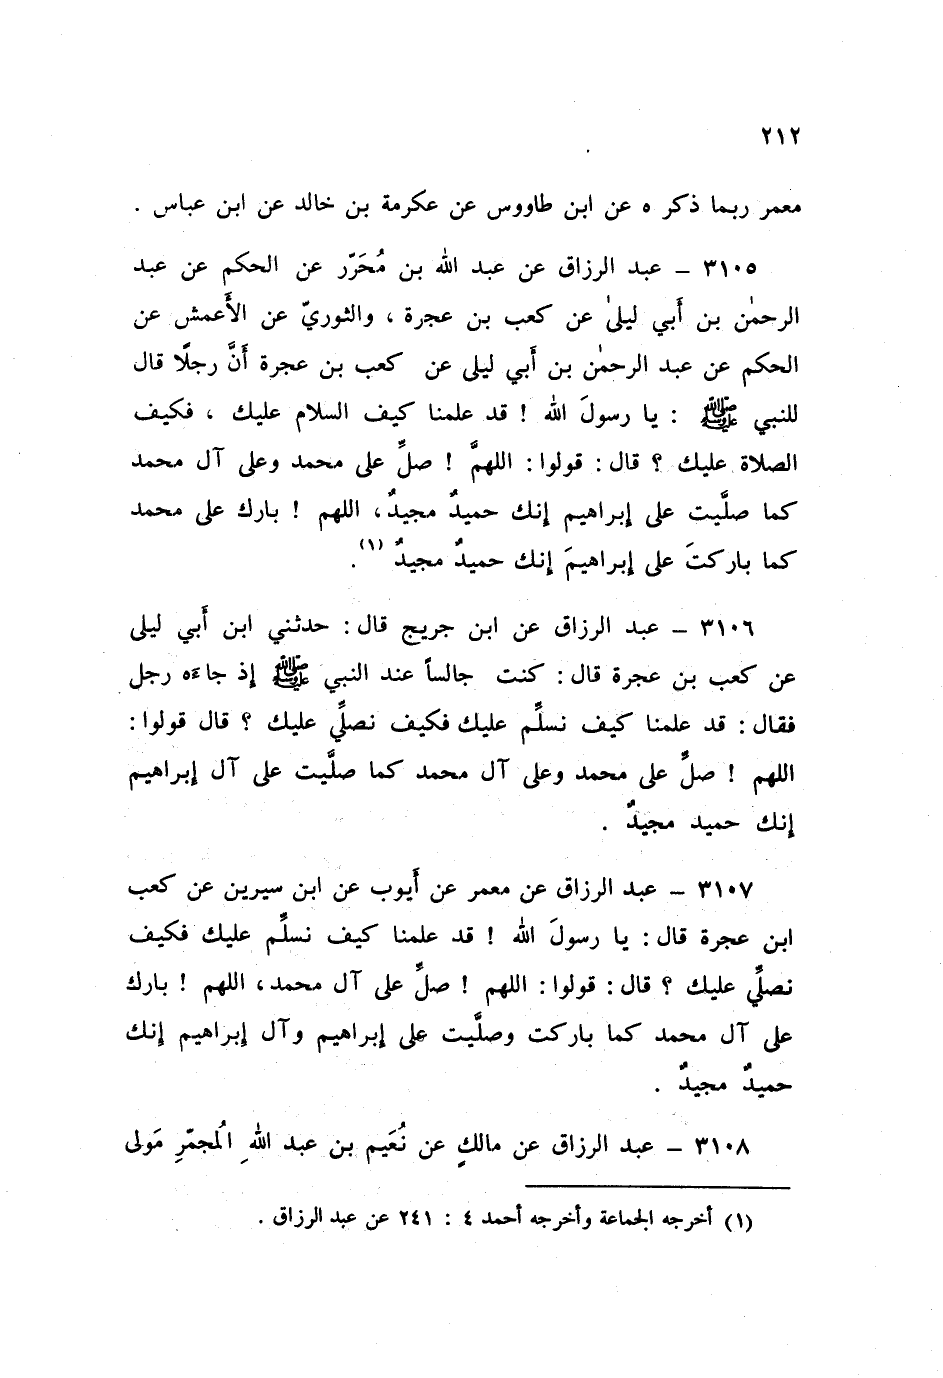 ٢١٢
معمر ربما ذكره عن ابن طاووس عن عكرمة بن خالد عن ابن عباس .
٣١٠٥ – عبد الرزاق عن عبد الله بن مُحَرّر عن الحكم عن عبد
الرحمٰن بن أَبي ليلىٰ عن كعب بن عجرة ، والثوريّ عن الأَعمش عن
الحكم عن عبد الرحمٰن بن أَبي ليلى عن كعب بن عجرة أَنَّ رجلًا قال
للنبي ﷺ : يا رسولَ الله ! قد علمنا كيف السلام عليك ، فكيف
الصلاة عليك ؟ قال : قولوا : اللهمَّ ! صلِّ على محمد وعلى آل محمد
كما صلَّيت على إبراهيم إنك حميدٌ مجيدٌ ، اللهم ! بارك على محمد
كما باركتَ على إبراهيمَ إنك حميدٌ مجيدٌ (١) .
٣١٠٦ – عبد الرزاق عن ابن جريج قال : حدثني ابن أَبي ليلى
عن كعب بن عجرة قال : كنت جالساً عند النبي ﷺ إذ جاءه رجل
فقال : قد علمنا كيف نسلِّم عليك فكيف نصلِّي عليك ؟ قال قولوا :
اللهم ! صلِّ على محمد وعلى آل محمد كما صلَّيت على آل إبراهيم
إنك حميد مجيدٌ .
٣١٠٧ – عبد الرزاق عن معمر عن أَيوب عن ابن سيرين عن كعب
ابن عجرة قال : يا رسولَ الله ! قد علمنا كيف نسلِّم عليك فكيف
نصلِّي عليك ؟ قال : قولوا : اللهم ! صلِّ على آل محمد ، اللهم ! بارك
على آل محمد كما باركت وصلَّيت على إبراهيم وآل إبراهيم إنك
حميدٌ مجيدٌ .
٣١٠٨ – عبد الرزاق عن مالكٍ عن نُعَيم بن عبد اللهِ المُجمّرِ مَولى
(١) أخرجه الجماعة وأخرجه أحمد ٤ : ٢٤١ عن عبد الرزاق .